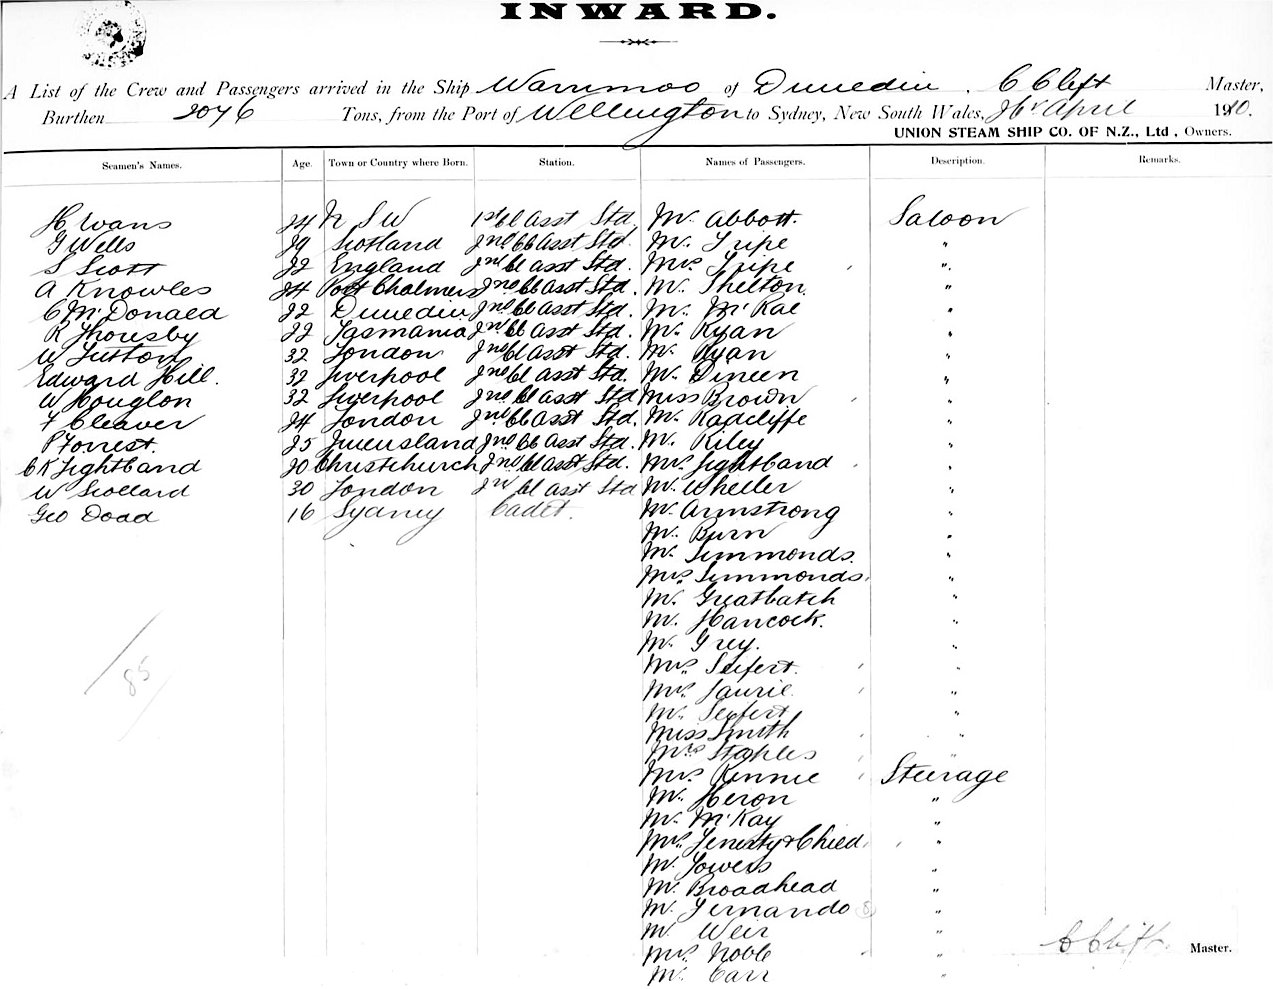 INWARD.
A List of the Crew and Passengers arrived in the Ship Warrimoo of Dunedin, C Clift Master,
Burthen 2076 Tons, from the Port of Wellington to Sydney, New South Wales, 26 April 1910.
UNION STEAM SHIP CO. OF N.Z., Ltd, Owners.
Seamen's Names. Age. Town or Country where Born. Station. Names of Passengers. Description. Remarks.
H Evans 24 N S W 1st Cl Asst Std Mr. Abbott. Saloon
G Wells 29 Scotland 2nd Cl Asst Std. Mr. Tripe "
S Scott 22 England 2nd Cl Asst Std. Mrs Tripe "
A Knowles 24 Port Chalmers 2nd Cl Asst Std. Mr. Shelton "
C McDonald 22 Dunedin 2nd Cl Asst Std. Mr. McRae "
R Thoresby 22 Tasmania 2nd Cl Asst Std. Mr. Ryan "
W 32 London 2nd Cl Asst Std. Mr. Ryan "
Edward Hill. 32 Liverpool 2nd Cl Asst Std. Mr. Dineen "
W Houglon 32 Liverpool 2nd Cl Asst Std Miss Brown "
F Cleaver 24 London 2nd Cl Asst Std. Mr. Radcliffe "
P Forrest. 25 Queensland 2nd Cl Asst Std. Mr. Riley "
C K Lightband 20 Christchurch 2nd Cl Asst Std. Mrs Lightband "
W Scollard 30 London 2nd Cl Asst Std Mr. Wheeler "
Geo Dodd 16 Sydney Cadet. Mr. Armstrong "
Mr. Burn "
Mr. Simmonds. "
Mrs. Simmonds. "
Mr. Greatbatch "
Mr. Hancock. "
Mr. Grey. "
Mrs. Seifert. "
Mrs. Laurie "
Mr. Seifert "
Miss Smith "
Mrs Staples "
85
Mrs. Rennie Steerage
Mr. Heron "
Mr. McKay "
Mrs. & Child "
Mr. Towers "
Mr. Broadhead "
Mr. Fernando 8 "
Mr. Weir "
C Clift. Master.
Mrs. Noble "
Mr. Carr "